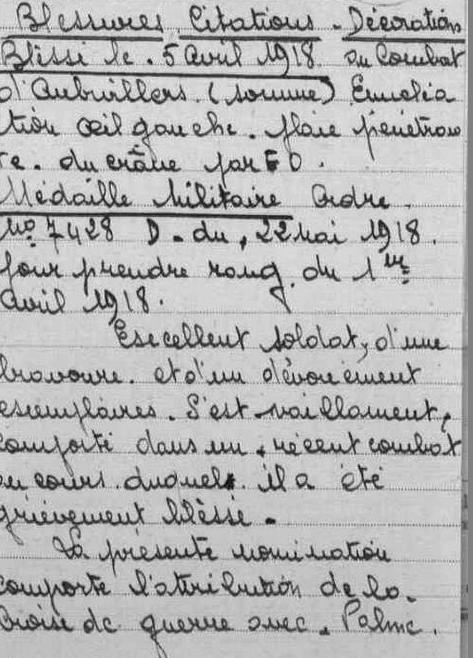 Blessures Citations - Décorations
Blessé le . 5 Avril 1918. au Combat
d'Aubvillers. (somme) Enucléa
tion œil gauche. plaie pénétran
te. du crâne par E O.
Médaille Militaire Ordre.
No 7428 D. du, 22 Mai 1918.
pour prendre rang. du 1er
Avril 1918.
Excellent soldat, d'une
bravoure. et d'un dévouement
exemplaires. S'est vaillament,
comporté dans un, récent combat
au cours duquel. il a été
grièvement blessé.
La présente nomination
comporte l'attribution de la.
Croix de guerre avec. Palme.